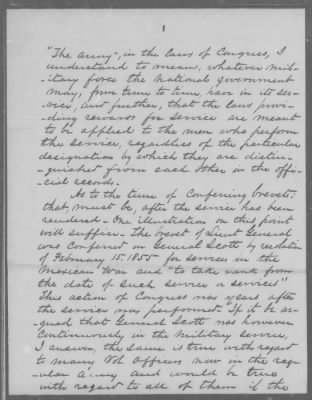 1
"The army", in the laws of Congress, I
understand to mean, whatever mil-
itary force the National government
may, from time to time, have in its ser-
vice, and further, that the laws provi-
ding rewards for service are meant
to be applied to the men who perform
the service, regardless of the particular
designation by which they are distin-
guished from each other in the offi-
cial records.
As to the time of conferring brevets,
that must be, after the service has been
rendered - One illustration on this point
will suffice - The brevet of Lieut General
was conferred on General Scott by resolution
of February 15. 1855 for services in the
Mexican War and "to take rank from
the date of such service or services"
This action of Congress was years after
the service was performed. If it be ar-
gued that General Scott was however
continuously in the military service,
I answer, the same is true with regard
to many Vol Officers now in the reg-
ular army and would be true
with regard to all of them if the